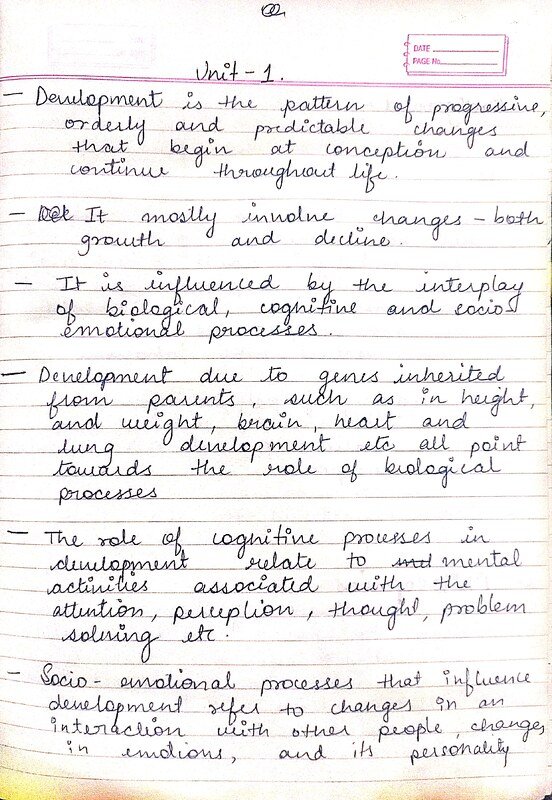 DATE
PAGE No.
Unit - 1.
— Development is the pattern of progressive,
orderly and predictable changes
that begin at conception and
continue throughout life.
— It mostly involve changes - both
growth and decline.
— It is influenced by the interplay
of biological, cognitive and socio-
emotional processes.
— Development due to genes inherited
from parents, such as in height,
and weight, brain, heart and
lung development etc all point
towards the role of biological
processes
— The role of cognitive processes in
development relate to mental
activities associated with the
attention, perception, thought, problem
solving etc.
- Socio- emotional processes that influence
development refer to changes in an
interaction with other people, changes
in emotions, and its personality